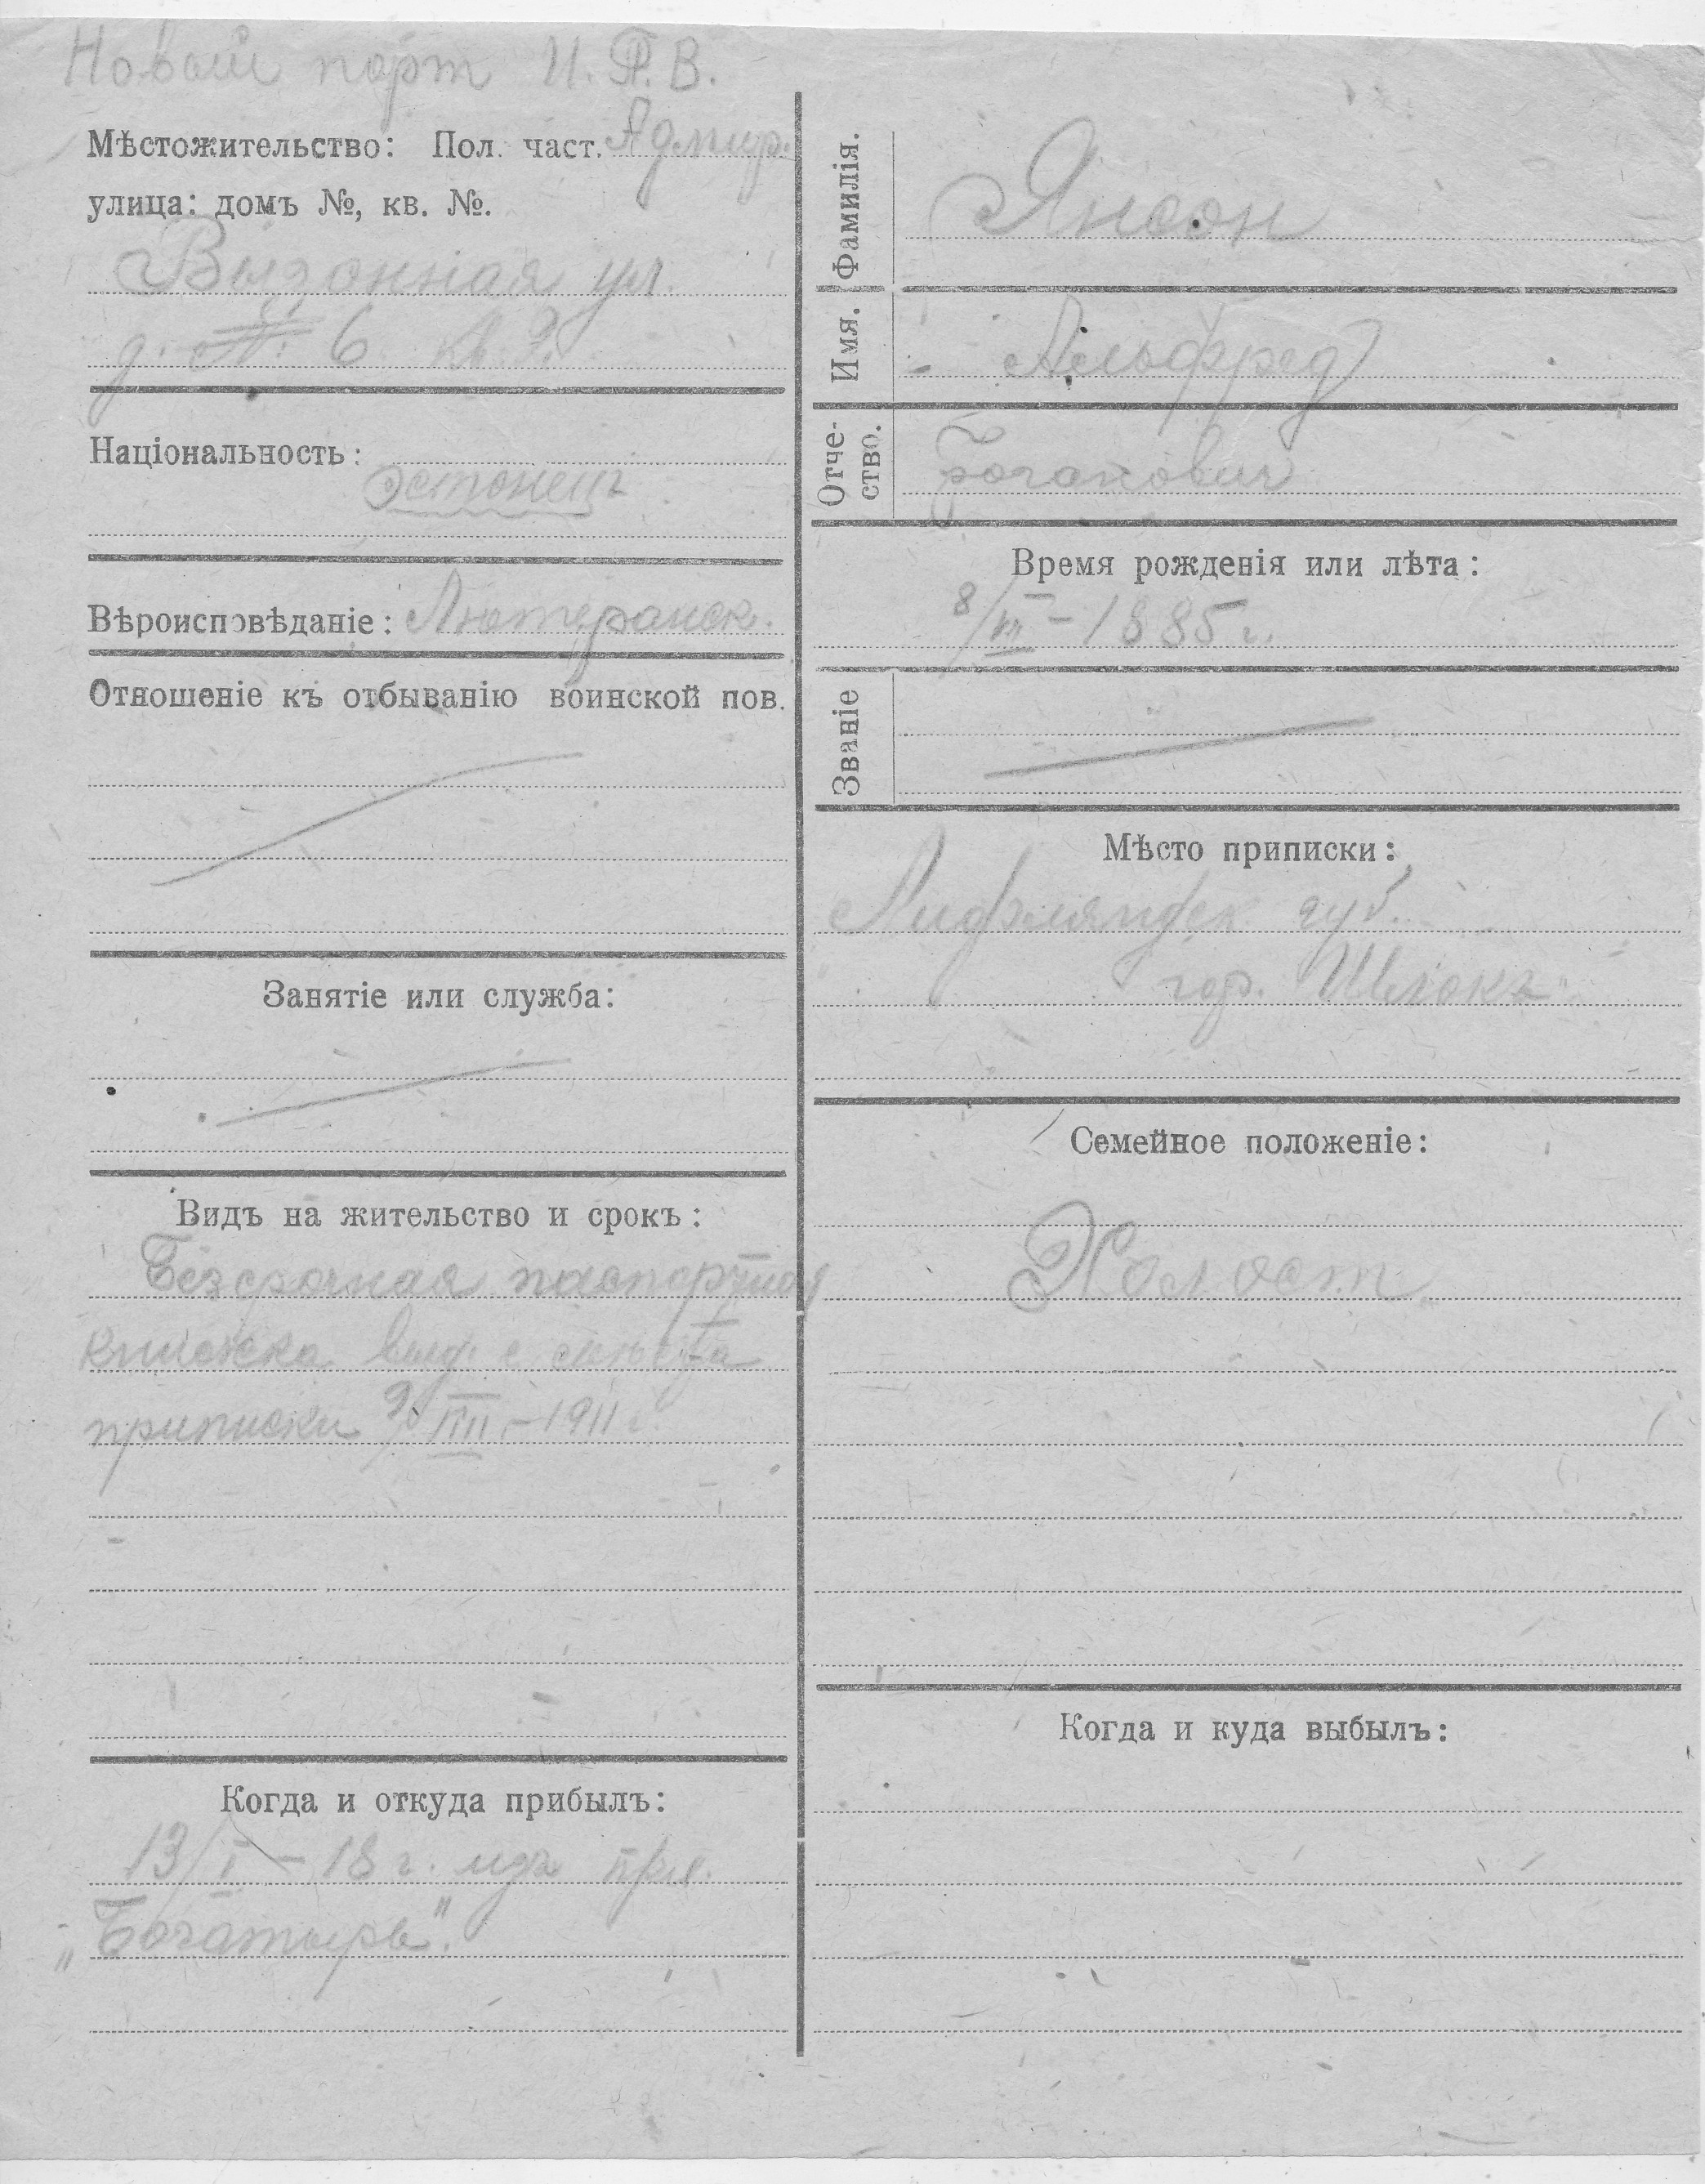 Новый порт И. П. В.
Мѣстожительство: Пол. част. Адмир.
улица: домъ №, кв. №.
ул.
д. № 6 кв. 2.
Національность:
эстонецъ
Вѣроисповѣданіе: Лютеранск.
Отношеніе къ отбыванію воинской пов.
Занятіе или служба:
Видъ на жительство и срокъ:
Безсрочная паспортная
книжка выд. с мѣста
приписки 1911 г.
Когда и откуда прибылъ:
13/I – 18 г. изъ
„Богатырь".
Фамилія.
Янсон
Имя.
Альфред
Отче-
ство.
Время рожденія или лѣта:
8/III – 1885 г.
Званіе
Мѣсто приписки:
Лифляндск. губ.
гор. Шлокъ
Семейное положеніе:
Холост
Когда и куда выбылъ: